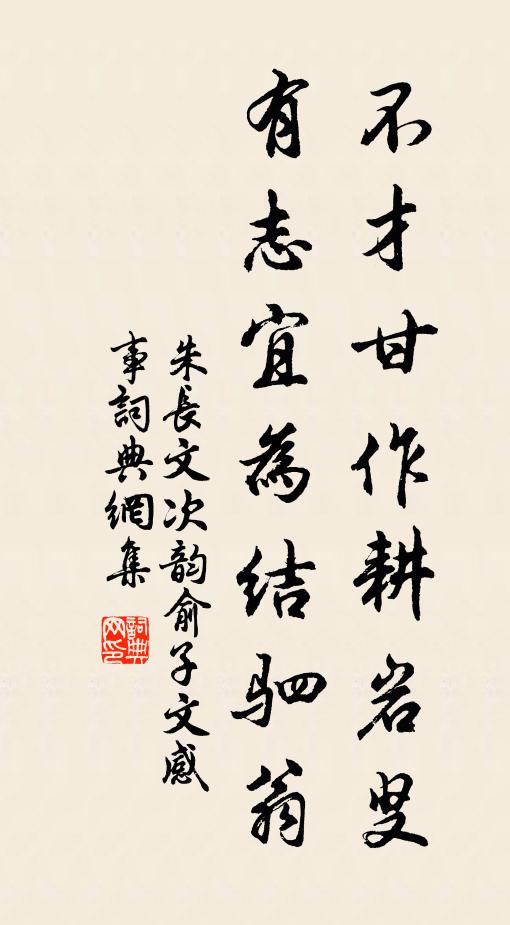 不才甘作耕岩叟
有志宜為结驷翁
朱長文次韵俞子文感
事詞典網集
詞典网印